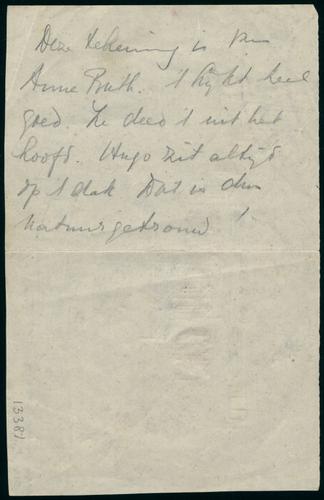 Deze teekening is van
Anne Ruth. 't lijkt heel
goed. Ze deed 't uit het
hoofd. Hugo zit altijd
op 't dak. Dat is dus
natuurgetrouw!
13381